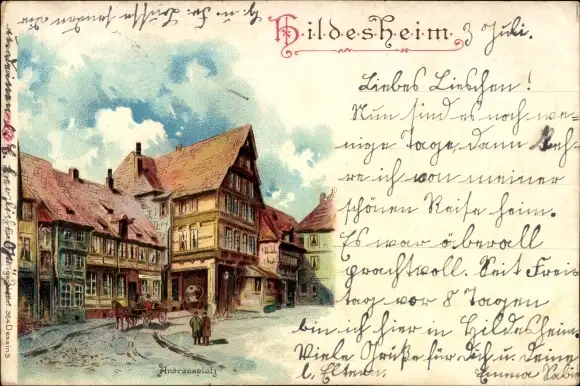 Hildesheim
3 Juli.
Liebes Lieschen!
Nun sind es noch we-
nige Tage, dann keh-
re ich von meiner
schönen Reise heim.
Es war überall
prachtvoll. Seit Frei-
tag vor 8 Tagen
bin ich hier in Hildesheim.
Viele Grüße für Dich u. Deine
l. Eltern. Emma
Andreasplatz